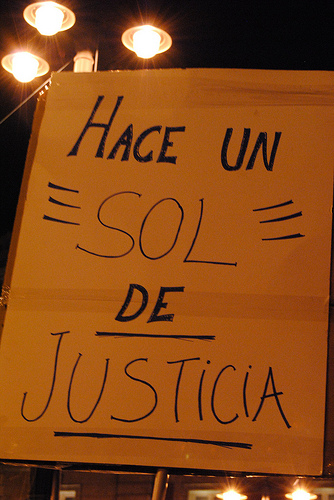 HACE UN
SOL
DE
JUSTICIA